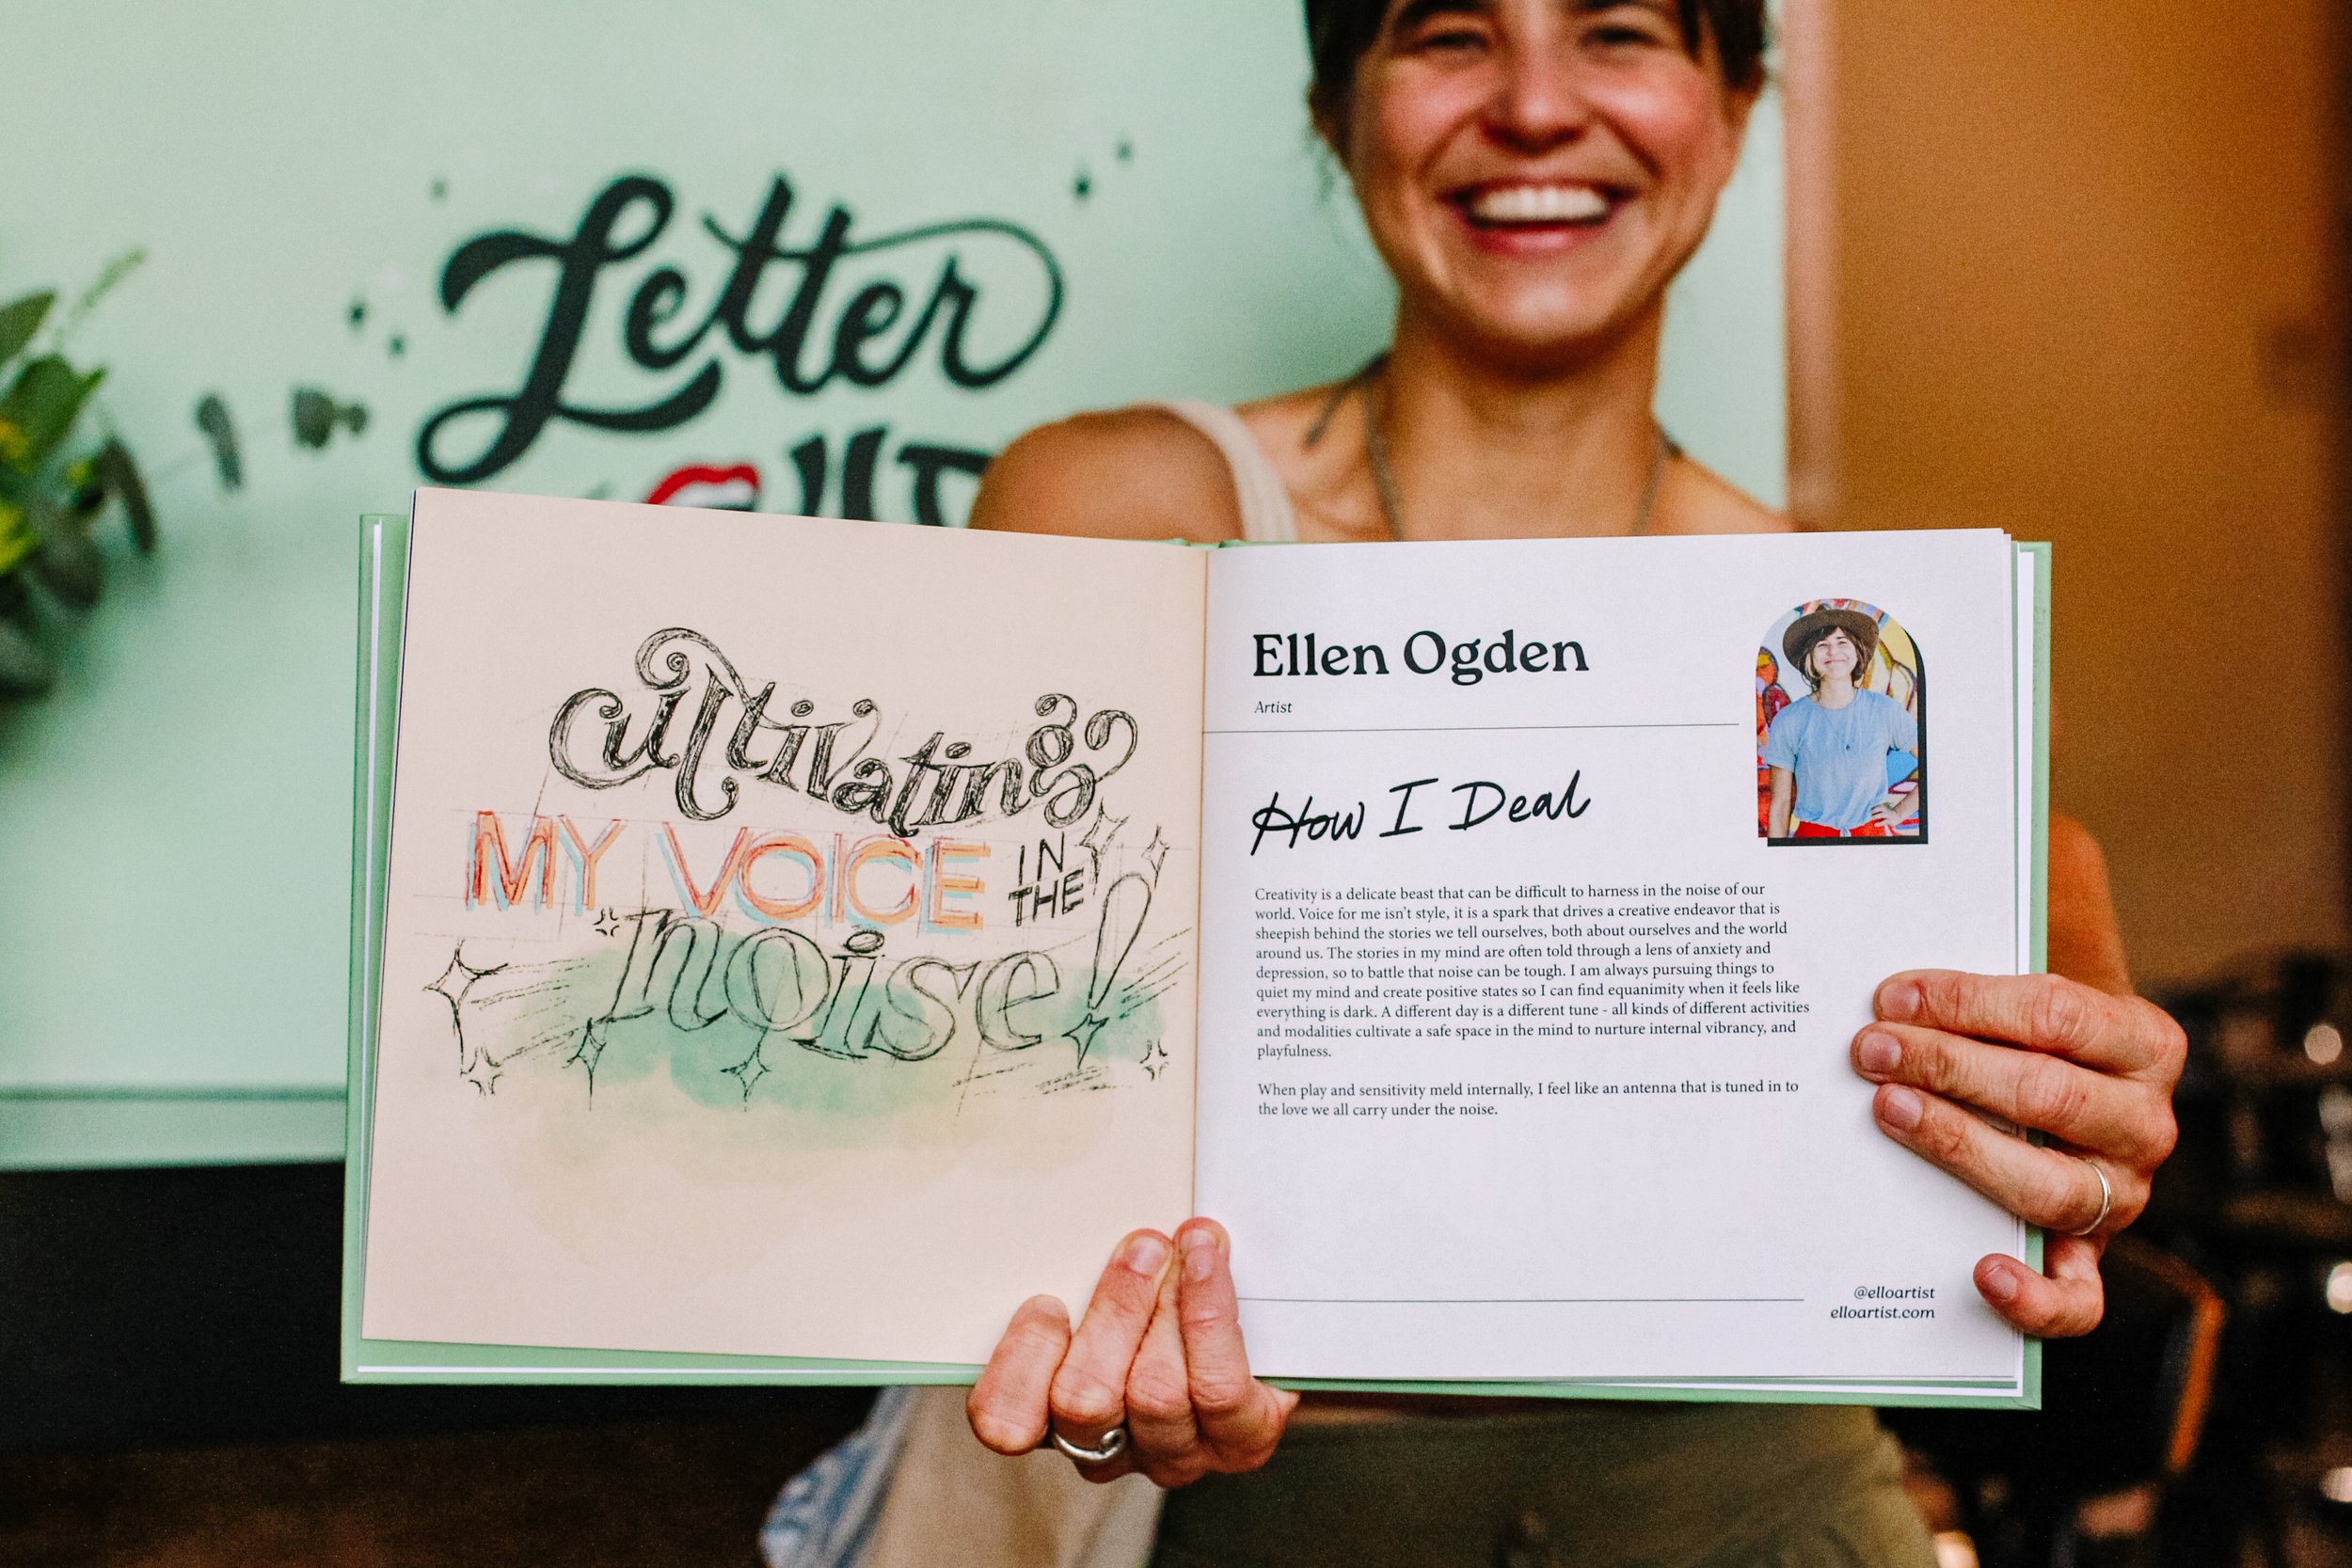 Letter
cultivating
MY VOICE IN
THE
noise!
Ellen Ogden
Artist
How I Deal
Creativity is a delicate beast that can be difficult to harness in the noise of our
world. Voice for me isn't style, it is a spark that drives a creative endeavor that is
sheepish behind the stories we tell ourselves, both about ourselves and the world
around us. The stories in my mind are often told through a lens of anxiety and
depression, so to battle that noise can be tough. I am always pursuing things to
quiet my mind and create positive states so I can find equanimity when it feels like
everything is dark. A different day is a different tune - all kinds of different activities
and modalities cultivate a safe space in the mind to nurture internal vibrancy, and
playfulness.
When play and sensitivity meld internally, I feel like an antenna that is tuned in to
the love we all carry under the noise.
@elloartist
elloartist.com